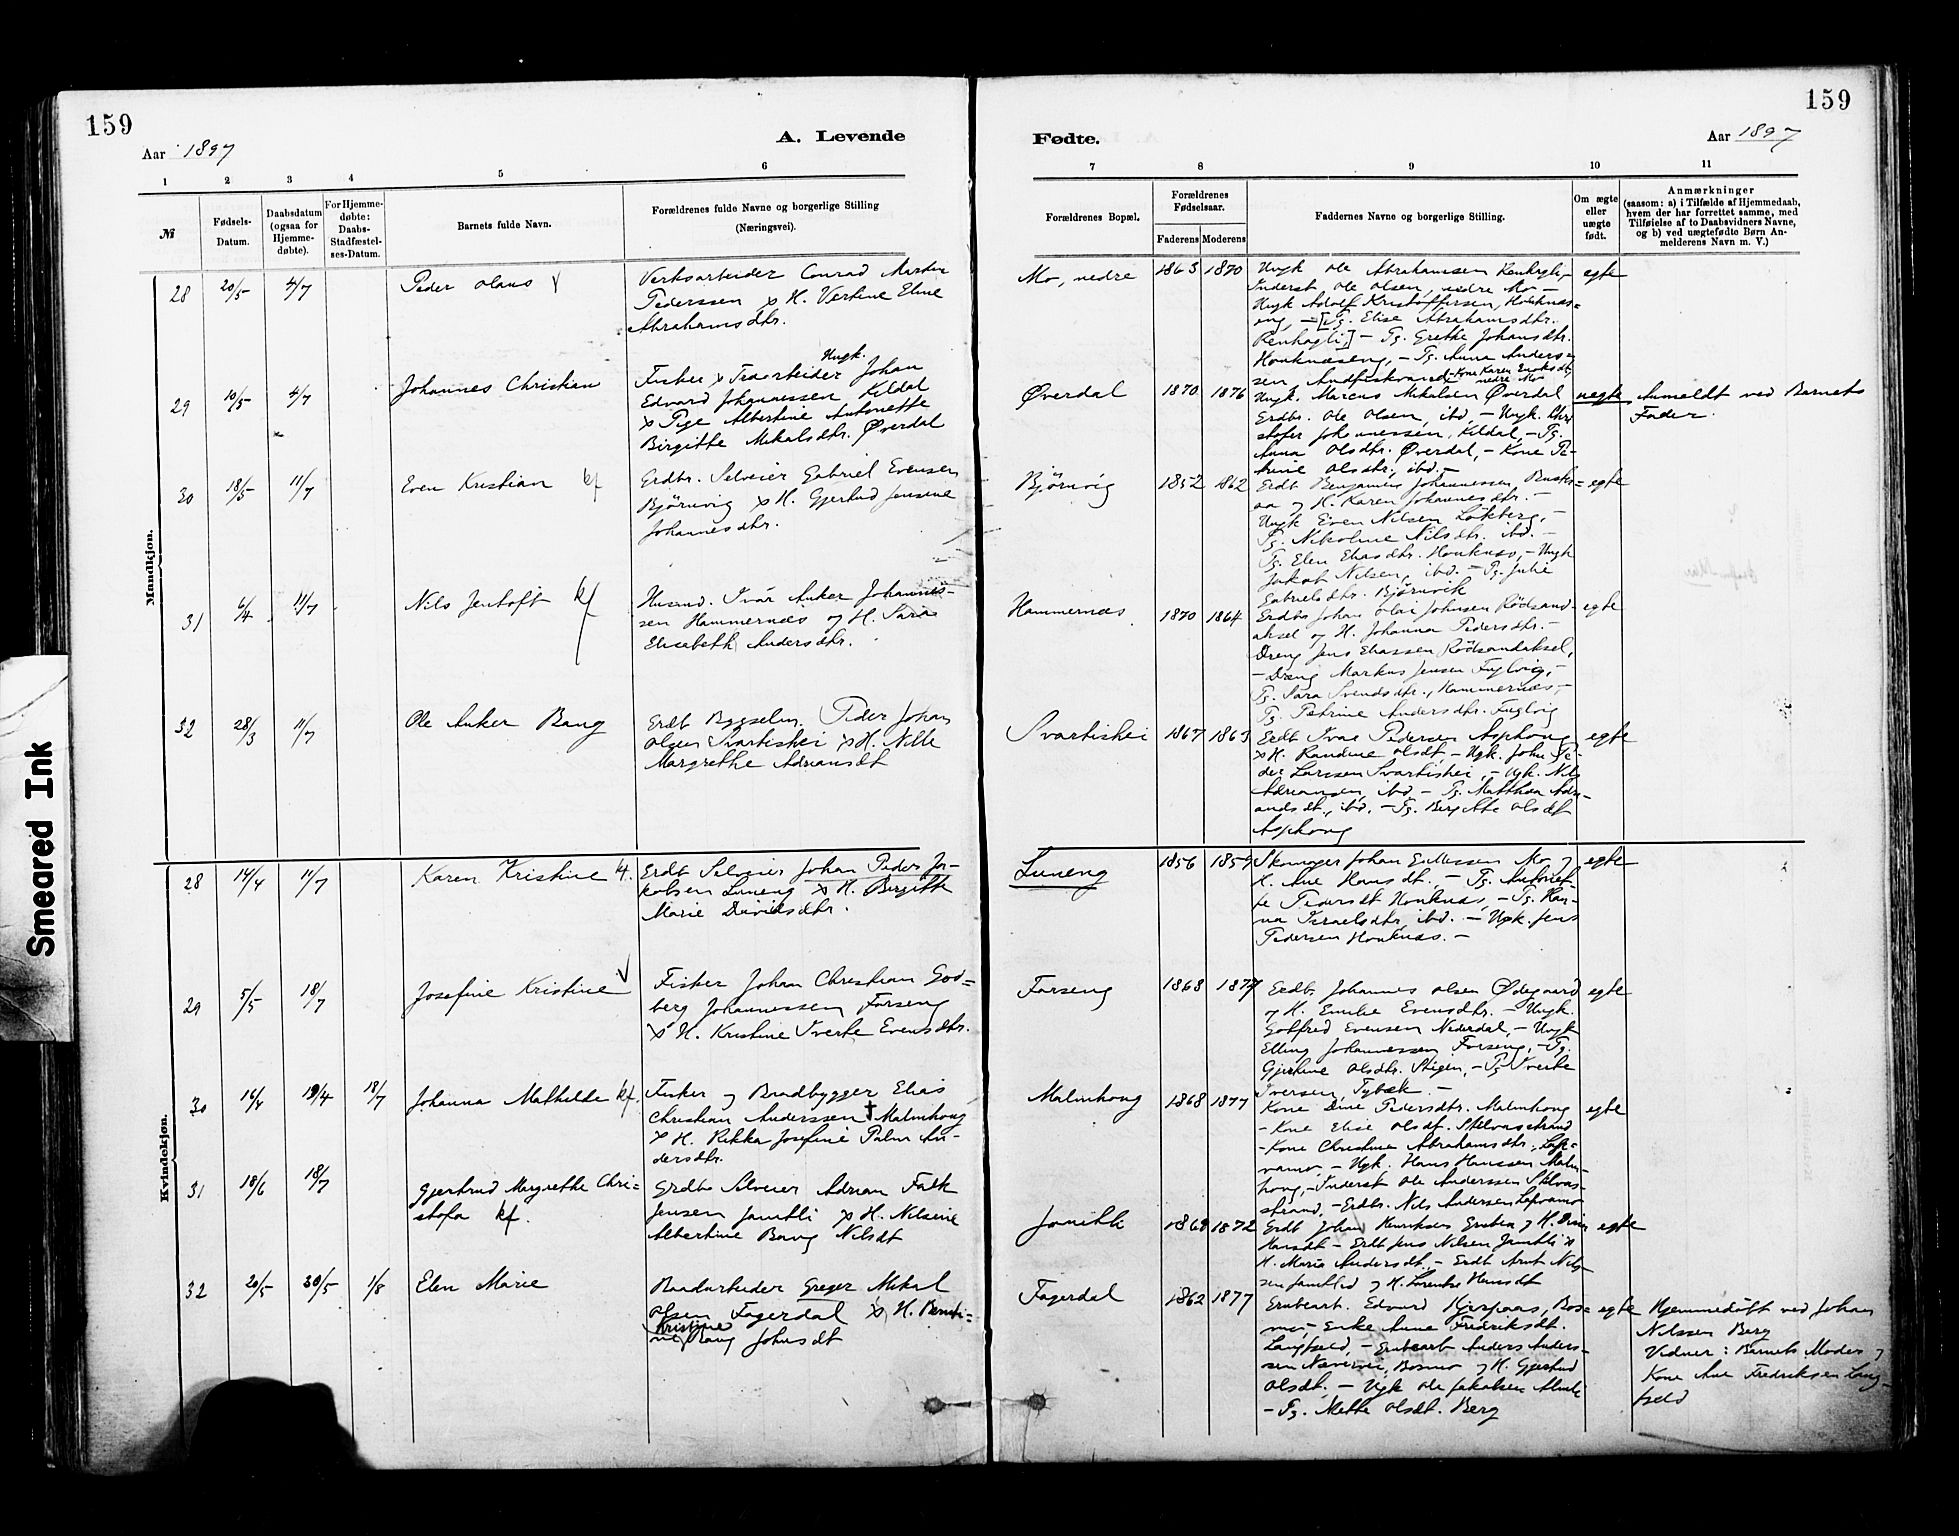 159
159
A. Levende
Fødte.
Aar 1897
Aar 1897
1
2
3
4
5
6
7
8
9
10
11
№
Fødsels-
Datum.
Daabsdatum
(ogsaa for
Hjemme-
døbte).
For Hjemme-
døbte:
Daabs-
Stadfæstel-
ses-Datum.
Barnets fulde Navn.
Forældrenes fulde Navne og borgerlige Stilling
(Næringsvei).
Forældrenes Bopæl.
Forældrenes
Fødselsaar.
Faderens
Moderens
Faddernes Navne og borgerlige Stilling.
Om ægte
eller
uægte
født.
Anmærkninger
(saasom: a) i Tilfælde af Hjemmedaab,
hvem der har forrettet samme, med
Tilføielse af to Daabsvidners Navne,
og b) ved uægtefødte Børn An-
melderens Navn m. V.)
Mandkjøn.
28
20/5
4/7
Peder Olaus
Verksarbeider Conrad Martin
Pederssen & H. Verkine Eline
Abrahamsdtr.
Mo, nedre
1863
1870
Ungk Ole Abrahamssen
Inderst Ole Olsen, nedre Mo –
Ungk Adolf Kristoffersen,
eng, – [Pg. Elise Abrahamsdtr.
– Pg. Grethe Johansdtr.
– Pg. Anna Anders-
sen,
– Kone Karen
nedre Mo
egte
29
10/5
4/7
Johannes Christian
Ungk.
Fisker & Træarbeider Johan
Edvard Johannessen, Kildal
& Pige Albertine Antonette
Birgitte Mikalsdtr. Øverdal
Øverdal
1870
1876
Ungk. Marcus Mikalsen Øverdal
Erdbr. Ole Olsen, ibd, – Ungk. Chri
stofer Johannessen, Kildal, – Pg.
Anna Olsdtr. Øverdal, – Kone Pe-
trine Olsdtr., ibd. –
uegte
Anmeldt ved Barnets
Fader.
30
18/5
11/7
Even Kristian kf
Grdbr. Selveier Gabriel Evensen
Bjørnvig & H. Gjertrud Jensine
Johannesdtr.
Bjørnvig
1852
1862
Erdb Benjamin Johannessen,
aa og H. Karen Johannesdtr. –
Ungk Even Nilsen Løkberg, –
Pg. Nikoline Nilsdtr. ibd. –
Pg. Elen Eliasdtr. Honknæs, – Ungk
Jakob Nilsen, ibd. – Pg. Julie
Gabrielsdtr. Bjørnvik
egte
31
6/4
11/7
Nils Jentoft kf
Husmd. Ivar Anker Johannes-
sen Hammernæs og H. Sara
Elisabeth Andersdtr.
Hammernæs
1870
1864
Erdb Johan Olai Johnsen Rødsand-
aksel og H. Johanna Pedersdtr. –
Dreng Jens Eliassen Rødsandaksel,
– Dreng Markus Jensen Fuglvig, –
Pg. Sara Svendsdtr., Hammernæs, –
Pg. Petrine Andersdtr. Fuglvig
egte
32
28/3
11/7
Ole Anker Bang
Erdb Bygselm. Peder Johan
Olsen Svartishei & H. Nille
Margrethe Adriansdt
Svartishei
1867
1863
Erdb Ivar Pedersen Asphoug
& H. Randine Olsdt – Ugk. John Pe-
der Larssen Svartishei, – Ugk. Nils
Adriansen, ibd – Pg. Matthea Adri-
ansdt., ibd. – Pg. Bergitte Olsdt
Asphoug
egte
Kvindekjøn.
28
14/4
11/7
Karen Kristine kf.
Erdb Selveier Johan Peder Ja-
kobsen Luneng & H. Birgitte
Marie Davidsdtr.
Luneng
1856
1857
Skomager Johan Ellessen Mo, og
H. Ane Hansdt. – Pg. Antonet-
te Pedersdt Honknæs, – Pg. Han-
na Israelsdtr, ibd. – Ugk. Jens
Pedersen Honknæs. –
egte
29
5/5
18/7
Josefine Kristine
Fisker Johan Christian God-
berg Johannessen Forseng
& H. Kristine Iverke Evensdtr.
Forseng
1868
1874
Erdb. Johannes Olsen Ødegaard
og H. Emelie Evensdtr. – Ungk.
Gotfred Evensen Nederdal, – Ungk
Elling Johannessen Forseng, – Pg.
Gjertine Olsdtr. Stigen, – Pg Iverke
Iversen Tybæk –
egte
30
16/4
19/4
18/7
Johanna Mathilde kf.
Anker og Baadbygger Elias
Christian Anderssen † Malmhoug
& H. Rikka Josefine Palm An-
dersdtr.
Malmhoug
1868
1877
Kone Dine Pedersdtr. Malmhoug
– Kone Elise Olsdt. Stilvasstrand
– Kone Christine Abrahamsdtr.,
– Ugk. Hans Hanssen Malm-
houg, – Inderst Ole Anderssen Stilvas-
strand, – Erdb. Nils Andersen
egte
31
18/6
18/7
Gjertrud Margrethe Chri-
stofa kf.
Grdbr Selveier Adrian Falk
Jensen Jamtli & H. Nilsine
Albertine Bang Nilsdt
Jamtli
1868
1872
Erdb Johan Henriksen og H.
Hansdt – Erdb Jens Nilsen Jamtli &
H. Maria Andersdt. – Erdb Arnt Nils-
sen og H. Lorentse Hansdt
egte
32
20/5
30/5
1/8
Elen Marie
Baadarbeider Greger Mikal
Olsen Fagerdal & H. Berntine
Kristine
Bang Johnsdt
Fagerdal
1862
1877
Grubearb. Edvard Hjerpaas, Bos-
mo, – Enke Anne Fredriksdt.
Langfjeld, – Grubearb Anders Anders-
sen Bosmo og H. Gjertrud
Olsdt. – Ugk Ole Jakobsen
– Pg. Mette Olsdt. Berg
egte
Hjemmedøbt ved Johan
Nilssen Berg
Vidner: Barnets Moder og
Kone Ane Fredriksen Lang-
fjeld
Smeared Ink